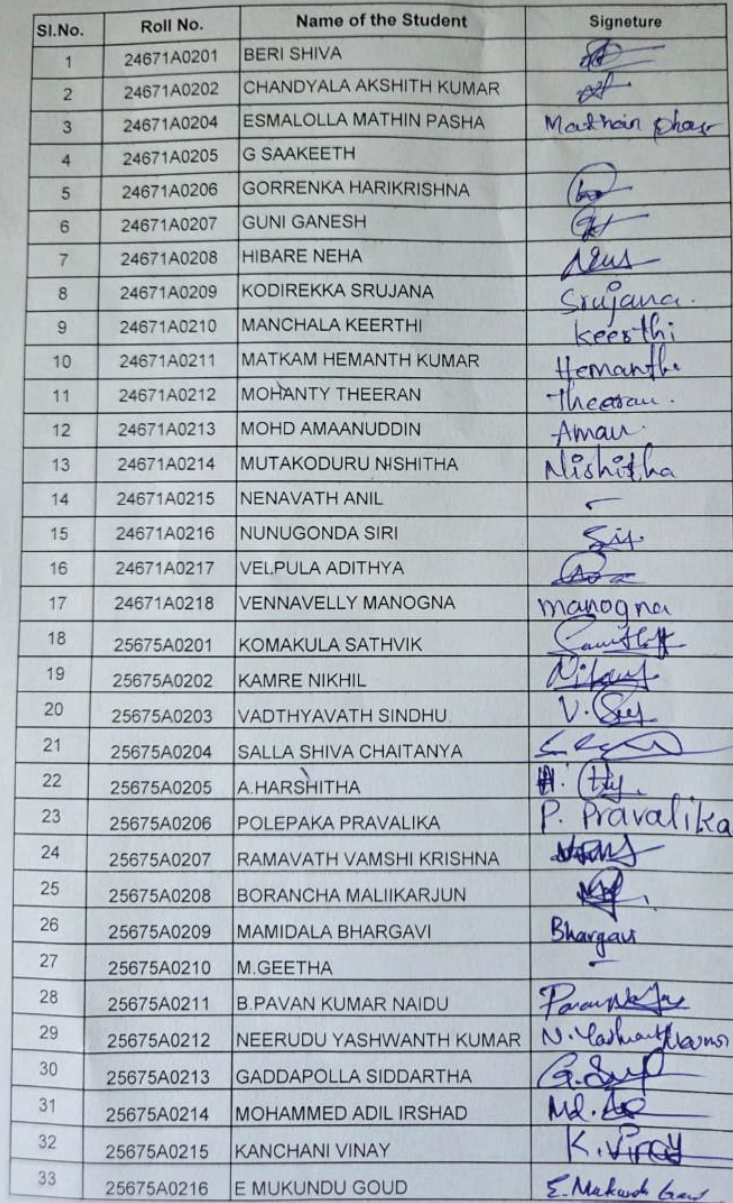 Sl.No. Roll No. Name of the Student Signeture
1 24671A0201 BERI SHIVA
2 24671A0202 CHANDYALA AKSHITH KUMAR
3 24671A0204 ESMALOLLA MATHIN PASHA
4 24671A0205 G SAAKEETH
5 24671A0206 GORRENKA HARIKRISHNA
6 24671A0207 GUNI GANESH
7 24671A0208 HIBARE NEHA
8 24671A0209 KODIREKKA SRUJANA Srujana.
9 24671A0210 MANCHALA KEERTHI Keerthi
10 24671A0211 MATKAM HEMANTH KUMAR Hemanth
11 24671A0212 MOHANTY THEERAN Theeran.
12 24671A0213 MOHD AMAANUDDIN Aman.
13 24671A0214 MUTAKODURU NISHITHA Nishitha
14 24671A0215 NENAVATH ANIL -
15 24671A0216 NUNUGONDA SIRI
16 24671A0217 VELPULA ADITHYA
17 24671A0218 VENNAVELLY MANOGNA manogna
18 25675A0201 KOMAKULA SATHVIK
19 25675A0202 KAMRE NIKHIL
20 25675A0203 VADTHYAVATH SINDHU V.
21 25675A0204 SALLA SHIVA CHAITANYA
22 25675A0205 A.HARSHITHA
23 25675A0206 POLEPAKA PRAVALIKA P. Pravalika
24 25675A0207 RAMAVATH VAMSHI KRISHNA
25 25675A0208 BORANCHA MALIIKARJUN
26 25675A0209 MAMIDALA BHARGAVI Bhargavi
27 25675A0210 M.GEETHA -
28 25675A0211 B.PAVAN KUMAR NAIDU
29 25675A0212 NEERUDU YASHWANTH KUMAR N.
30 25675A0213 GADDAPOLLA SIDDARTHA G.
31 25675A0214 MOHAMMED ADIL IRSHAD Md.
32 25675A0215 KANCHANI VINAY K.Vinay
33 25675A0216 E MUKUNDU GOUD E.